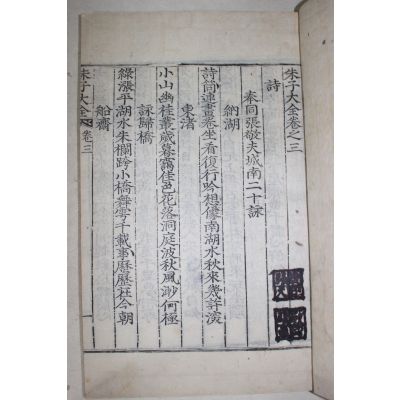 朱子大全卷之三
詩
奉同張敬夫城南二十詠
納湖
詩筒連畫卷坐看復行吟想像南湖水秋來幾許深
東渚
小山幽桂叢歲暮靄佳色花落洞庭波秋風渺何極
詠歸橋
綠漲平湖水朱欄跨小橋舞雩千載事歷歷在今朝
船齋
朱子大全 卷三